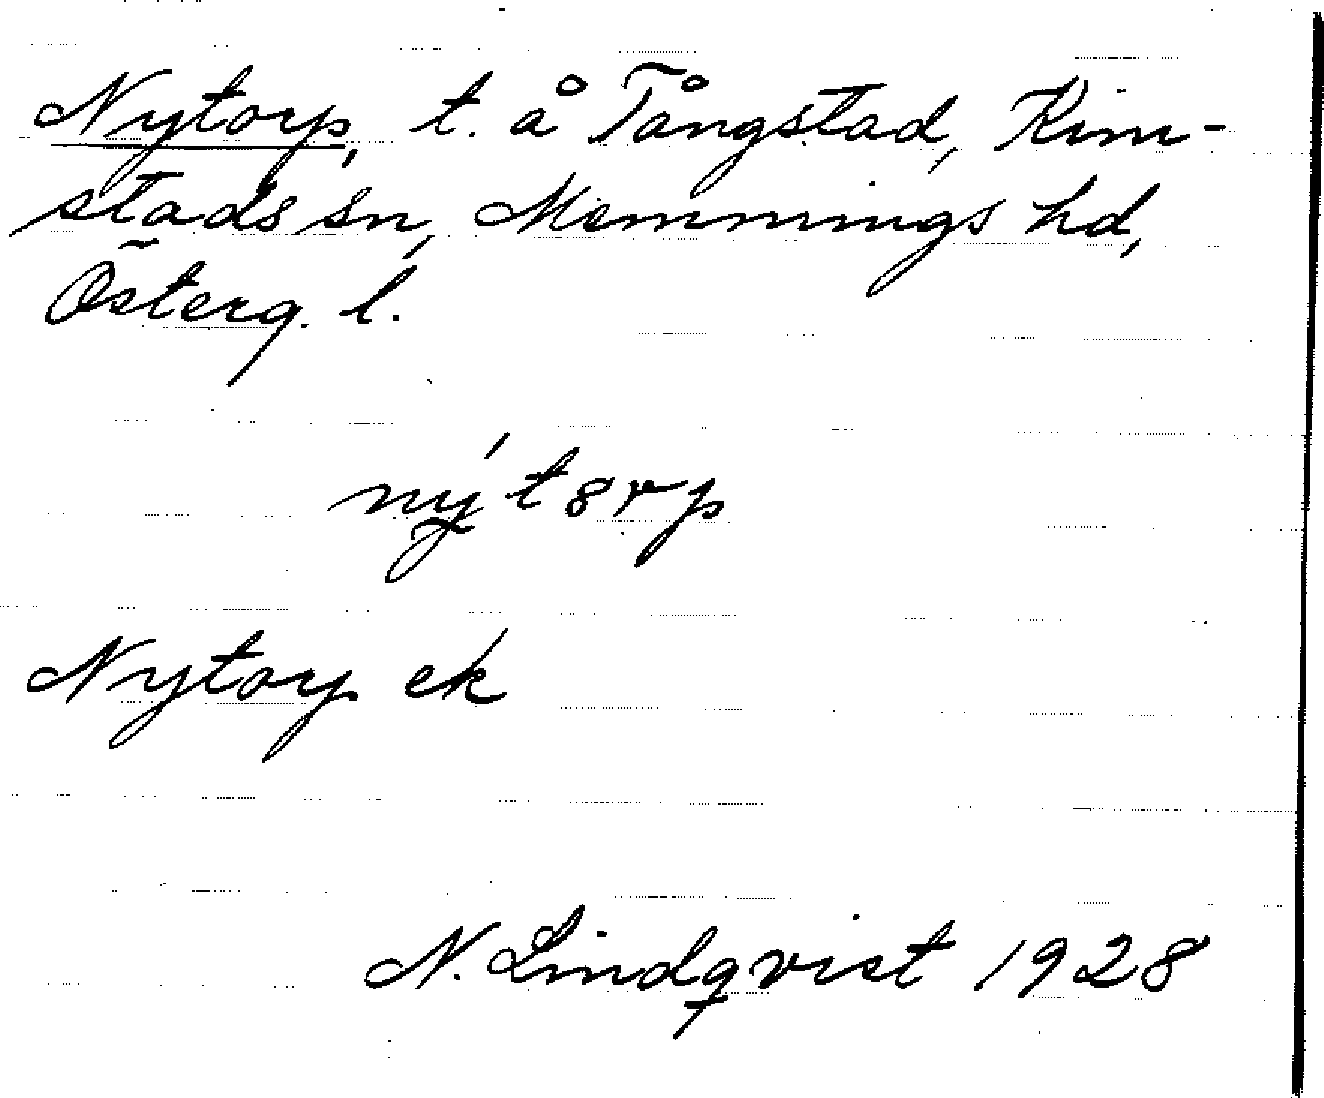 Nytorp, t. å Tångstad, Kim-
stads sn, Memmings hd,
Österg. l.
nýt8rp
Nytorp ek
N. Lindqvist 1928